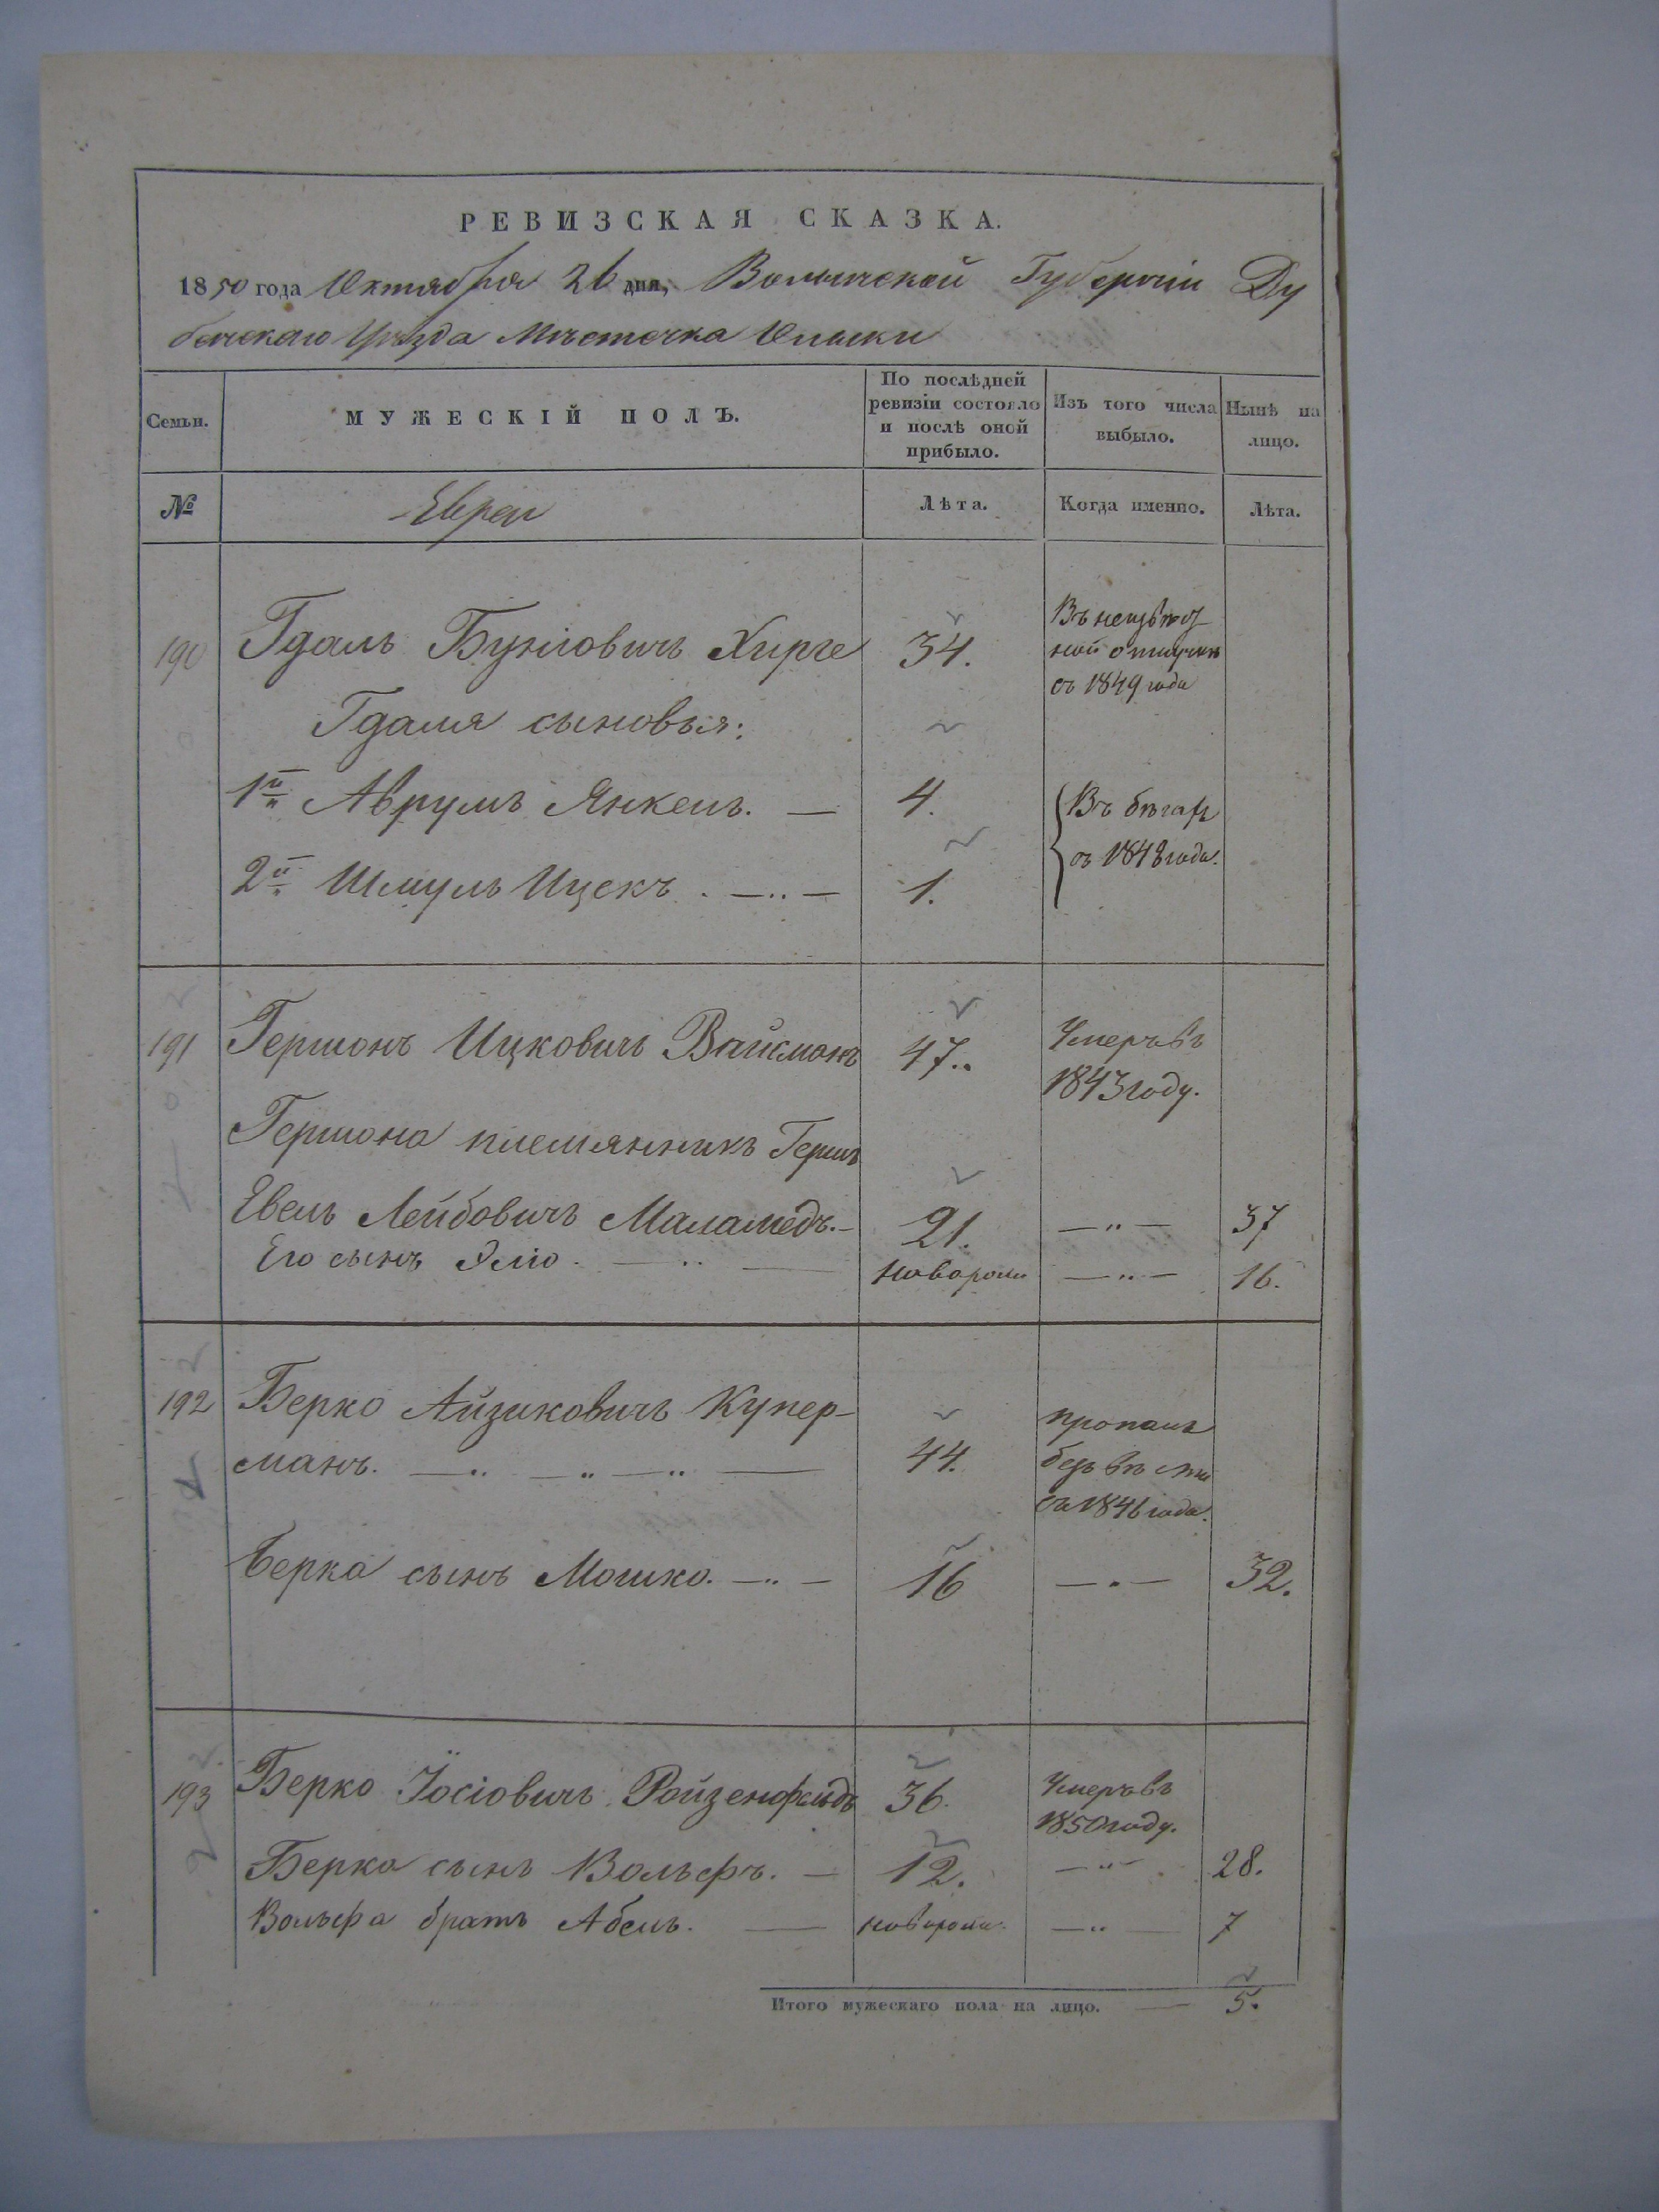 РЕВИЗСКАЯ СКАЗКА.
1850 года Октября 26 дня, Волынской Губерніи Ду
бенскаго Уѣзда Мѣстечка Олыки
Семьи.
МУЖЕСКІЙ ПОЛЪ.
По послѣдней
ревизіи состояло
и послѣ оной
прибыло.
Изъ того числа
выбыло.
Нынѣ на
лицо.
№
Евреи
Лѣта.
Когда именно.
Лѣта.
190
Гдаль Буніовичъ Хирге
34.
Въ
ной отлучкѣ
съ 1849 года
Гдаля сыновья:
1й Аврумъ Янкель. —
4.
Въ бѣгахъ
съ 1848 года.
2й Шмуль Ицекъ. —„—
1.
191
Гершонъ Ицковичъ Вайсманъ
47.
Умеръ въ
1843 году.
Гершона племянникъ Гершъ
Евель Лейбовичъ Маламедъ. —
21.
—„—
37
Его сынъ Эліо. —„—
новорож
—„—
16.
192
Берко Айзиковичъ Купер-
манъ. —„—„—„—
44.
пропалъ
безъ вѣсти
съ 1846 года.
Берка сынъ Мошко. —„—
16
—„—
32.
193
Берко Іосіовичъ Ройзенфельдъ
36.
Умеръ въ
1850 году.
Берка сынъ Вольфъ. —
12.
—„—
28.
Вольфа братъ Абель. —
новорож.
—„—
7
Итого мужескаго пола на лицо. — 5.